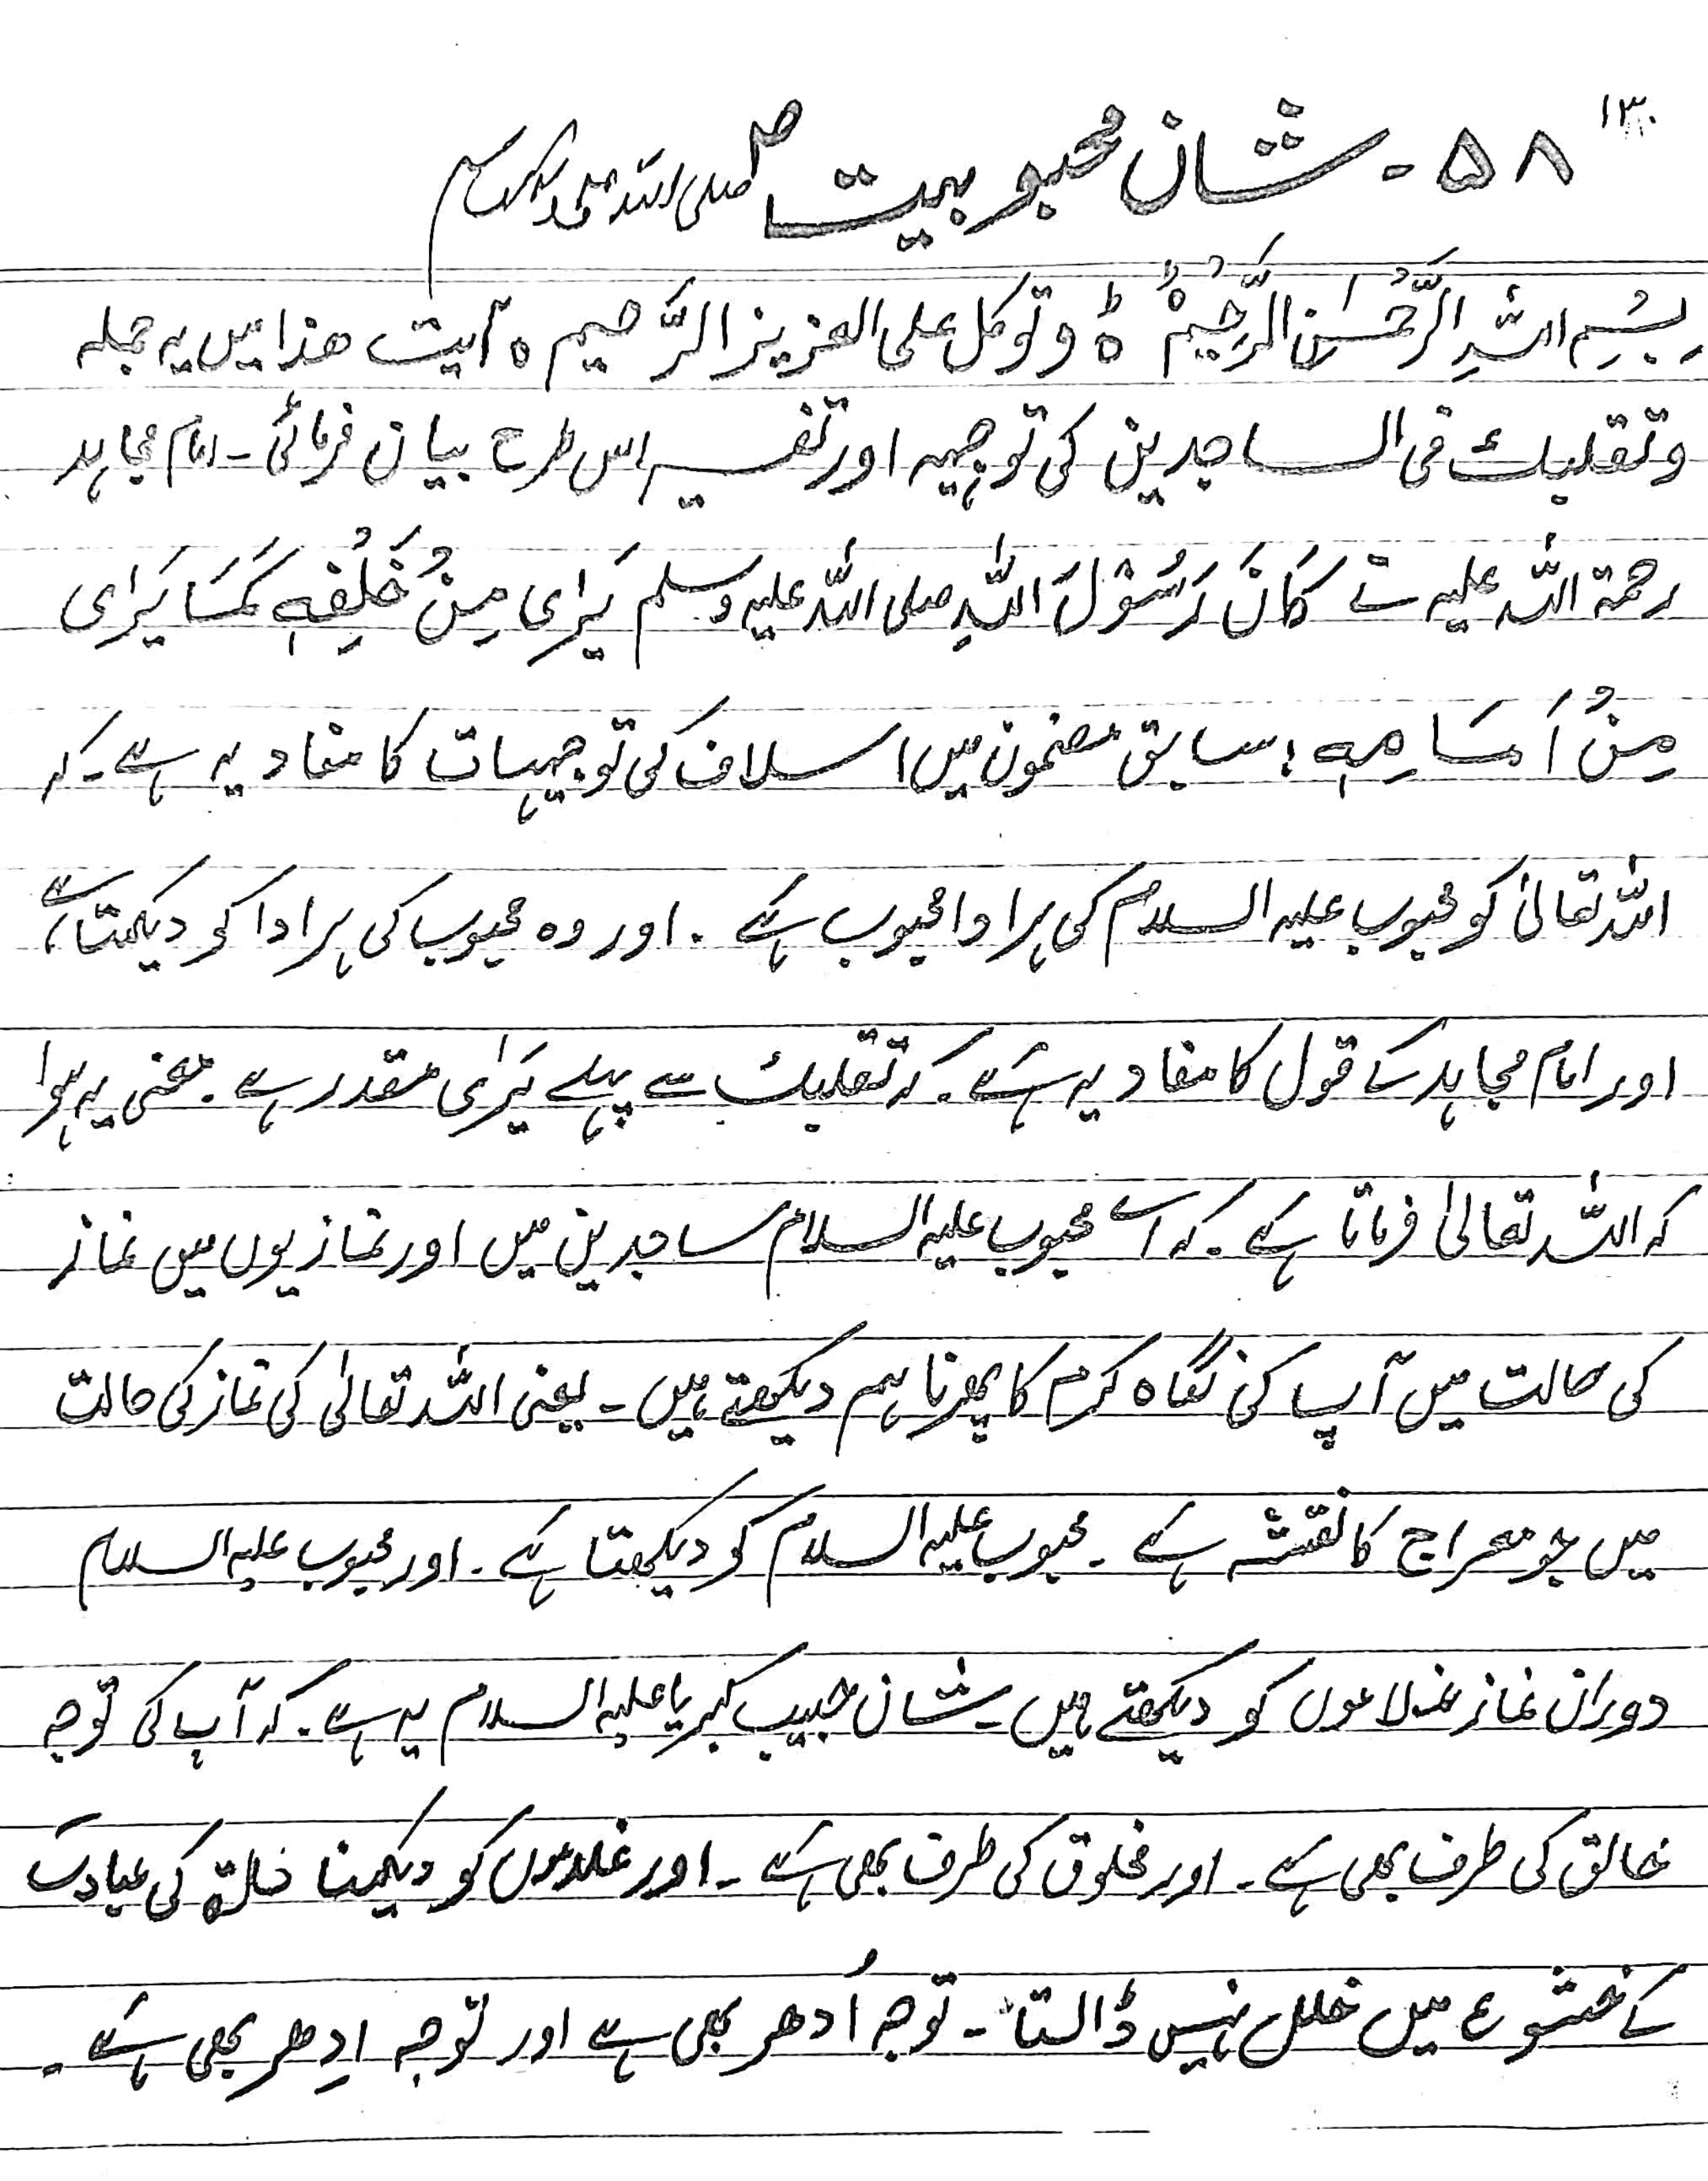 ۱۳۰
۵۸ - شان محبوبیت ؐ صلی اللہ علیہ وآلہ وسلم
بِسْمِ اللّٰہِ الرَّحْمٰنِ الرَّحِیْمِ ہ وتوکل علی العزیز الرَّحیم ہ آیت ھذا میں یہ جملہ
وتقلبک فی الساجدین کی توجیہہ اور تفسیر اس طرح بیان فرمائی ۔ امام مجاہد
رحمۃ اللہ علیہ نے کَانَ رَسُوْلَ اللّٰہِ صلی اللہ علیہ وسلم یَرٰای مِنْ خَلْفِہٖ کَمَا یَرٰای
مِنْ اَمَامِہٖ ؛ سابق مضمون میں اسلاف کی توجیہات کا مفاد یہ ہے ۔ کہ
اللہ تعالیٰ کو محبوب علیہ السلام کی ہر ادا محبوب ہے ۔ اور وہ محبوب کی ہر ادا کو دیکھتا ہے،
اور امام مجاہد کے قول کا مفاد یہ ہے ۔ کہ تقلبک سے پہلے یَرٰی مقدر ہے ۔ معنی یہ ہوا
کہ اللہ تعالیٰ فرماتا ہے ۔ کہ اے محبوب علیہ السلام ساجدین میں اور نمازیوں میں نماز
کی حالت میں آپ کی نگاہ کرم کا پھرنا ہم دیکھتے ہیں ۔ یعنی اللہ تعالیٰ کی نماز کی حالت
میں جو معراج کا نقشہ ہے ۔ محبوب علیہ السلام کو دیکھتا ہے ۔ اور محبوب علیہ السلام
دوران نماز غلاموں کو دیکھتے ہیں ۔ شان حبیب کبریا علیہ السلام یہ ہے ۔ کہ آپ کی توجہ
خالق کی طرف بھی ہے ۔ اور مخلوق کی طرف بھی ہے ۔ اور غلاموں کو دیکھنا خالق کی عبادت
کے خشوع میں خلل نہیں ڈالتا ۔ توجہ اُدھر بھی ہے اور توجہ اِدھر بھی ہے ۔